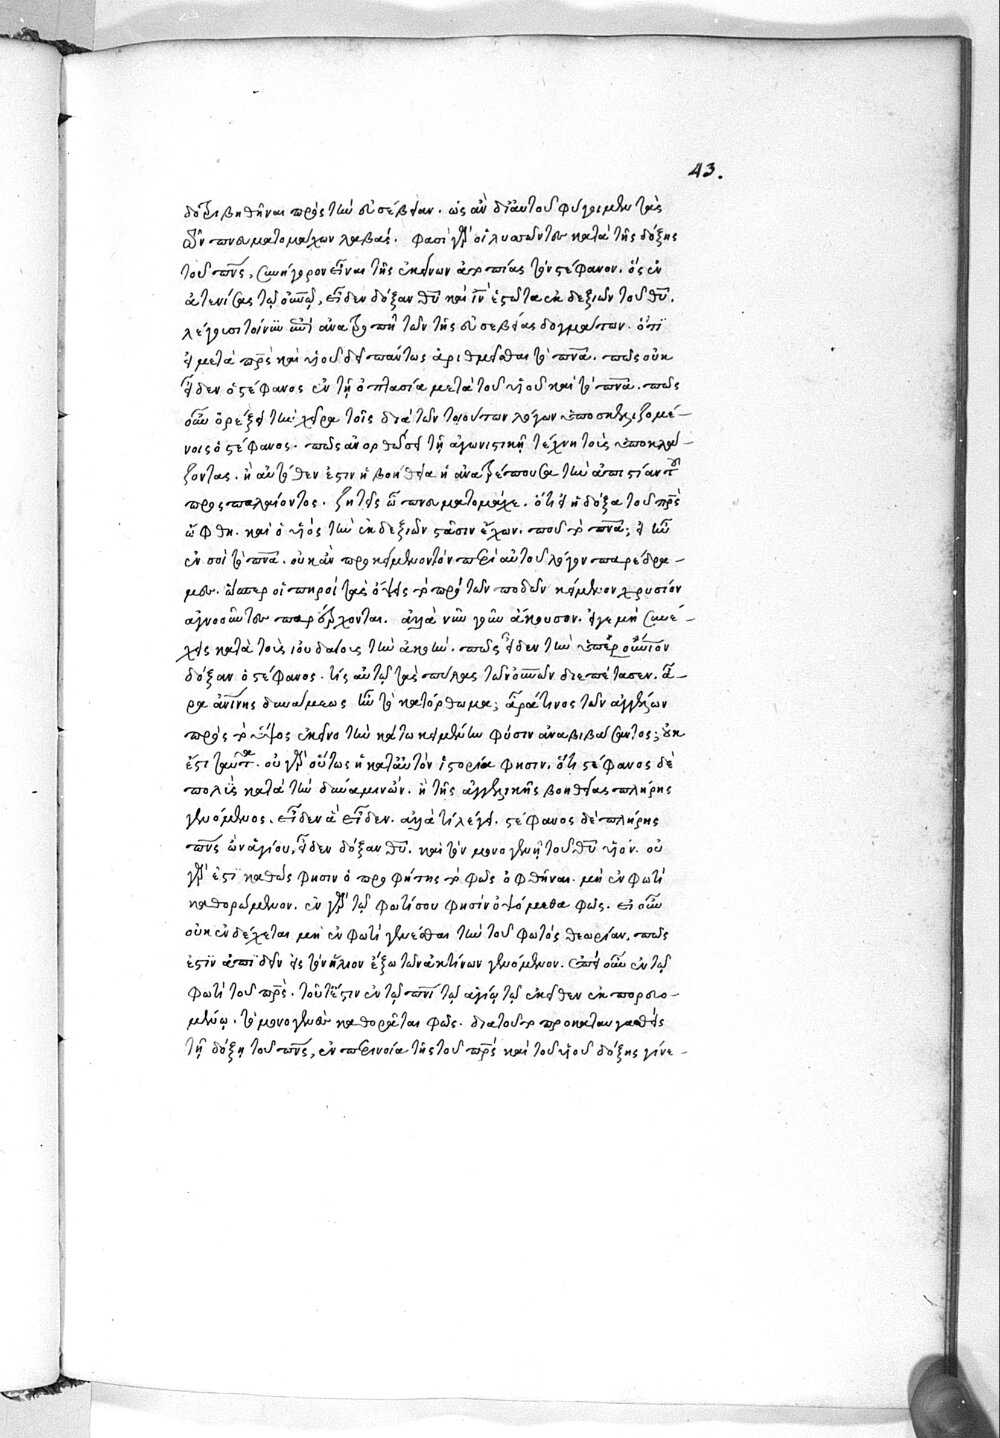 43.
δοξιβηθῆναι πρὸς τὴν εὐσέβειαν. ὡς ἂν διαυτοῦ φύγοιμεν τὰς
τῶν πνευματομάχων λαβάς. φασὶ γὰρ οἱ λυποῦντες κατὰ τῆς δόξης
τοῦ πνς, συνήγορον εἶναι τῆς ἐκείνων ἀπιστίας τὸν στέφανον. ὃς ἐν
ατενίσας τῷ οὐνῷ, εἶδεν δόξαν θῦ καὶ ἰν ἑστῶτα ἐκ δεξιῶν τοῦ θῦ.
λέγουσι τοίνυν ἀνατροπῆ τῶν τῆς εὐσεβείας δογμάτων. ὅτι
εἰ μετὰ πρς καὶ υἱοῦ δεῖ πάντως ἀριθμεῖσθαι τὸ πνα. πῶς οὐκ
εἶδεν ὁ στέφανος ἐν τῇ ὀπτασία μετὰ τοῦ υἱοῦ καὶ τὸ πνα. πῶς
οὖν ὀρέξει τὴν χεῖρα τοῖς διὰ τῶν τοιούτων λόγων ὑποσκελιζομέ-
νοις ὁ στέφανος. πῶς ἀνορθώσει τῇ ἀγωνιστικῇ τέχνη τοὺς ὑποκλά-
ζοντας. ἢ αὐτόθεν ἐστιν ἡ βοήθεια ἡ ἀνατρέπουσα τὴν ἀπιστίαν τοῦ
προσπαλαίοντος. ζητεῖς ὦ πνευματομάχε. ὅτι εἰ ἡ δόξα τοῦ πρς
ὤφθη. καὶ ὁ υἱὸς τὴν ἐκ δεξιῶν στάσιν ἔχων. ποῦ τὸ πνα; εἰ ἦν
ἐν σοὶ τὸ πνα. οὐκ ἂν προκείμενον τὸν περὶ αὐτοῦ λόγον παρέδρα-
μες. ὥσπερ οἱ πηροὶ τὰς ὄψεις τὸ πρὸ τῶν ποδῶν κείμενον χρυσίον
ἀγνοοῦντες παρέρχονται. ἀλλὰ νῦν γοῦν ἄκουσον. εἴγε μὴ συνέ-
χεις κατὰ τοὺς ιουδαίους τὴν ἀκοὴν. πῶς εἶδεν τὴν ὑπερουράνιον
δόξαν ὁ στέφανος. τίς αὐτῷ τὰς πύλας τῶν οὐνῶν διεπέτασεν. ἆ-
ρα ἀνίνης δυνάμεως ἦν τὸ κατόρθωμα; ἆρά τινος τῶν ἀγγέλων
πρὸς τὸ ὕψος ἐκεῖνο τὴν κάτω κειμένην φύσιν ἀναβιβάσαντος; οὐκ
ἔστι ταῦτα. οὐ γὰρ οὕτως ἡ κατ αὐτὸν ἱστορία φησιν. ὅτι στέφανος δὲ
πολὺς κατὰ τὴν δύναμιν ὤν. ἢ τῆς ἀγγελικῆς βοηθείας πλήρης
γενόμενος. εἶδεν ἃ εἶδεν. ἀλλὰ τί λέγει. στέφανος δὲ πλήρης
πνς ὢν ἁγίου, εἶδεν δόξαν θῦ. καὶ τὸν μονογενῆ τοῦ θῦ υἱόν. οὐ
γὰρ ἐστὶ καθώς φησιν ὁ προφήτης τὸ φῶς ὀφθῆναι. μὴ ἐν φωτὶ
καθορώμενον. ἐν γὰρ τῷ φωτί σου φησὶν ὀψόμεθα φῶς. εἰ οὖν
οὐκ ἐνδέχεται μὴ ἐν φωτὶ γενέσθαι τὴν τοῦ φωτὸς θεωρίαν. πῶς
ἐστὶν ἀπιδεῖν εἰς τὸν ἥλιον ἔξω τῶν ἀκτίνων γενόμενον. ἐπεὶ οὖν ἐν τῷ
φωτὶ τοῦ πρς. τοῦτέστιν ἐν τῷ πνὶ τῷ ἁγίῳ τῷ ἐκεῖθεν ἐκπορευο-
μένῳ. τὸ μονογενὲς καθορᾶται φῶς. διατοῦτο προκαταυγασθεὶς
τῇ δόξῃ τοῦ πνς, ἐν περινοία τῆς τοῦ πρς καὶ τοῦ υἱοῦ δόξης γίνε-